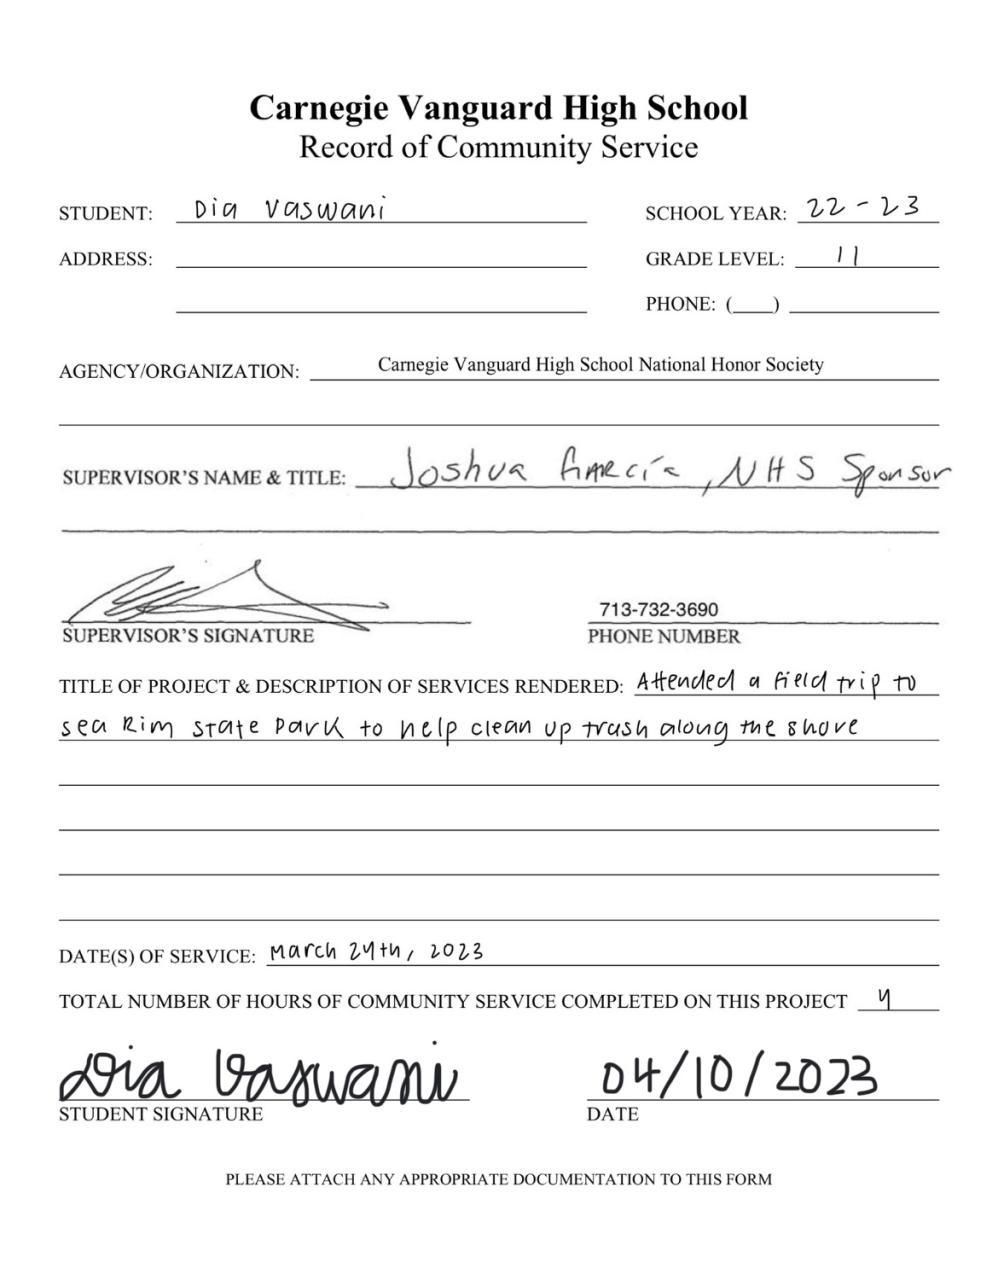 Carnegie Vanguard High School
Record of Community Service
STUDENT: Dia Vaswani SCHOOL YEAR: 22-23
ADDRESS: GRADE LEVEL: 11
PHONE: (___)
AGENCY/ORGANIZATION: Carnegie Vanguard High School National Honor Society
SUPERVISOR'S NAME & TITLE: Joshua García, NHS Sponsor
713-732-3690
SUPERVISOR'S SIGNATURE PHONE NUMBER
TITLE OF PROJECT & DESCRIPTION OF SERVICES RENDERED: Attended a field trip to
sea Rim State Park to help clean up trash along the shore
DATE(S) OF SERVICE: March 24th, 2023
TOTAL NUMBER OF HOURS OF COMMUNITY SERVICE COMPLETED ON THIS PROJECT 4
Dia Vaswani 04/10/2023
STUDENT SIGNATURE DATE
PLEASE ATTACH ANY APPROPRIATE DOCUMENTATION TO THIS FORM